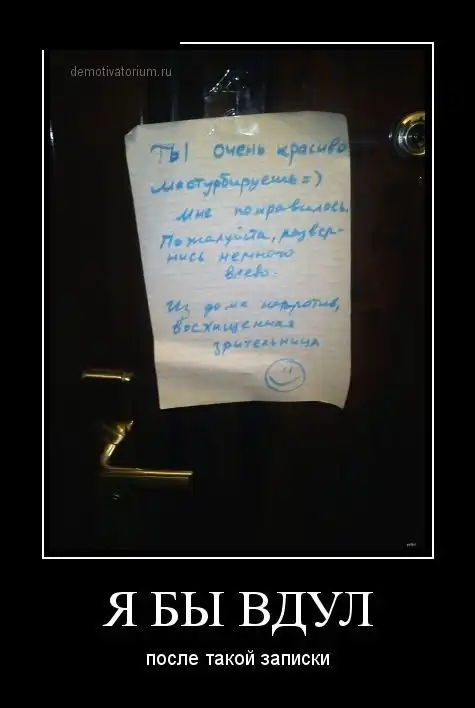 demotivatorium.ru
Ты очень красиво
мастурбируешь=)
мне понравилось.
Пожалуйста, развер-
нись немного
влево.
Из дома напротив,
восхищенная
зрительница
Я БЫ ВДУЛ
после такой записки